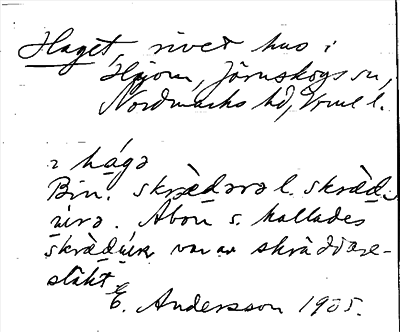 Haget, rivet hus i
Hajom, Järnskogs sn,
Nordmarks hd, Vrml.
hága
Bin. skrædara l. skræd
Åbon s. kallades
var av skräddare-
släkt
E. Andersson 1905.